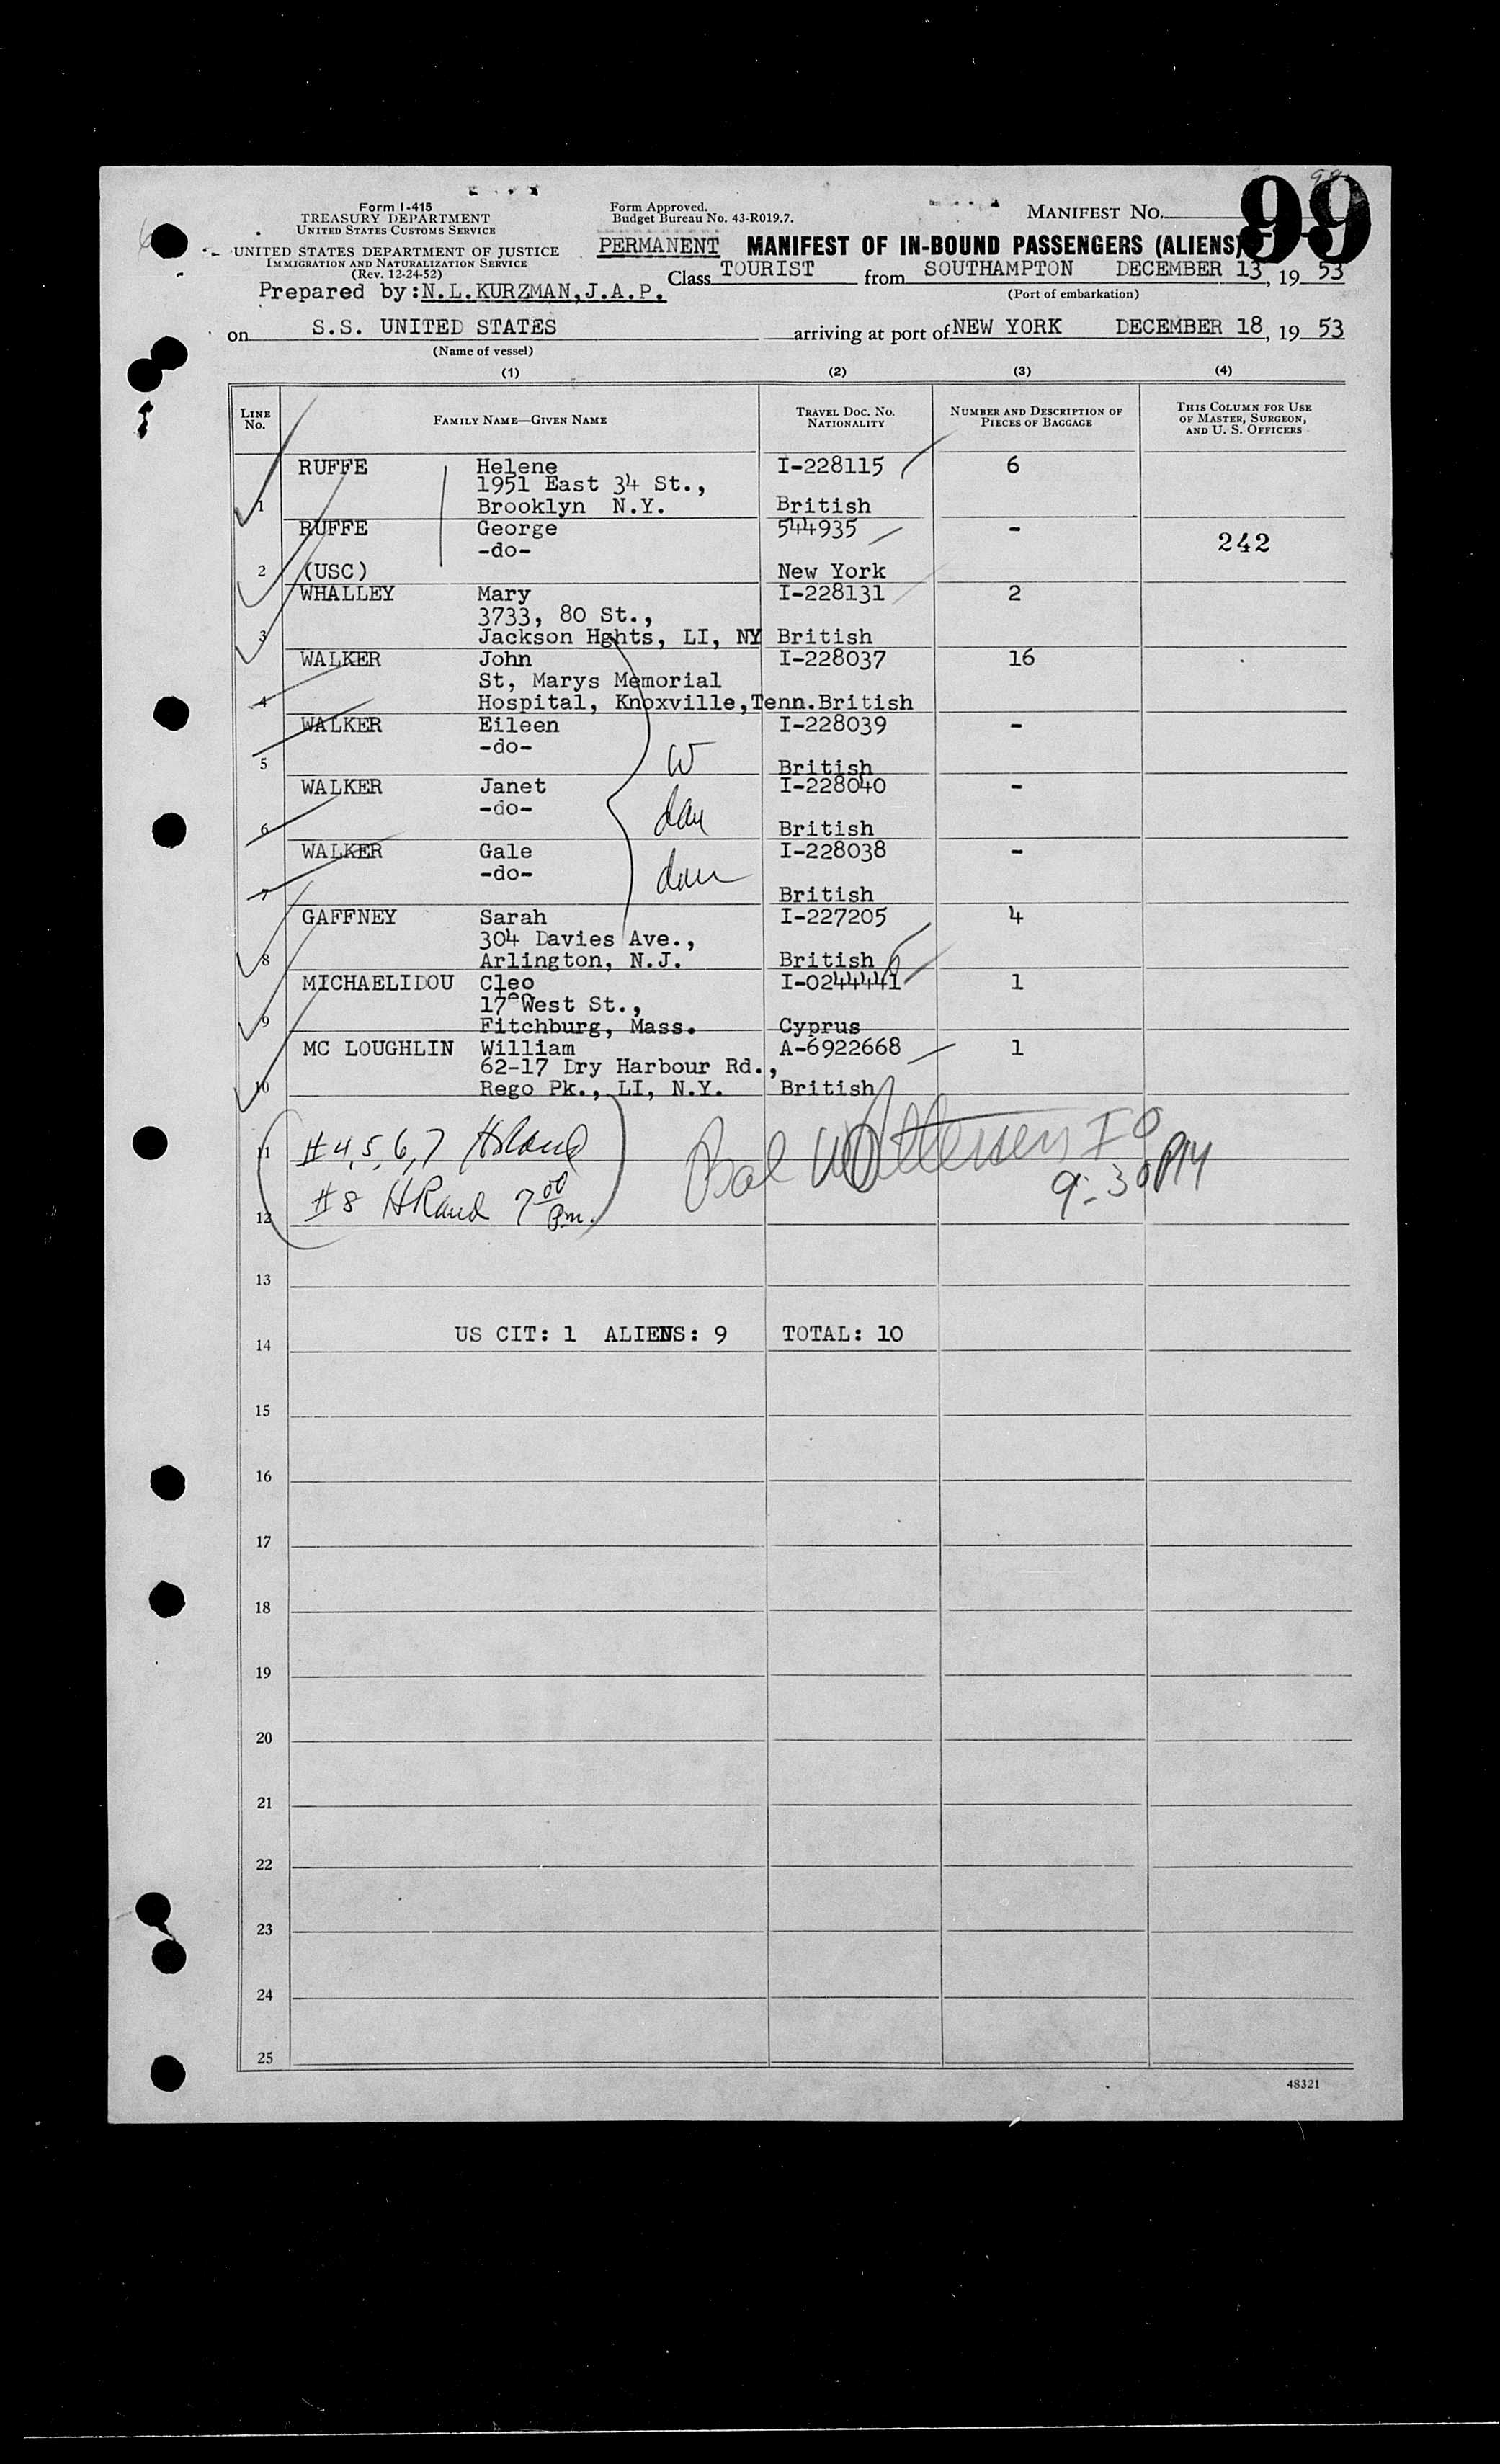 Form I-415
TREASURY DEPARTMENT
UNITED STATES CUSTOMS SERVICE
UNITED STATES DEPARTMENT OF JUSTICE
IMMIGRATION AND NATURALIZATION SERVICE
(Rev. 12-24-52)
Prepared by: N.L.KURZMAN, J.A.P.
Form Approved.
Budget Bureau No. 43-R019.7.
MANIFEST No. 99
PERMANENT MANIFEST OF IN-BOUND PASSENGERS (ALIENS)
Class TOURIST from SOUTHAMPTON DECEMBER 13, 19 53
(Port of embarkation)
on S.S. UNITED STATES arriving at port of NEW YORK DECEMBER 18, 19 53
(Name of vessel)
(1) (2) (3) (4)
LINE No. FAMILY NAME—GIVEN NAME TRAVEL DOC. No. NATIONALITY NUMBER AND DESCRIPTION OF PIECES OF BAGGAGE THIS COLUMN FOR USE OF MASTER, SURGEON, AND U. S. OFFICERS
RUFFE Helene I-228115 6
1951 East 34 St.,
1 Brooklyn N.Y. British
RUFFE George 544935 -
-do- 242
2 (USC) New York
WHALLEY Mary I-228131 2
3733, 80 St.,
3 Jackson Hghts, LI, NY British
WALKER John I-228037 16
St, Marys Memorial
4 Hospital, Knoxville,Tenn. British
WALKER Eileen I-228039 -
-do- W
5 British
WALKER Janet I-228040 -
-do- dau
6 British
WALKER Gale I-228038 -
-do- dau
7 British
GAFFNEY Sarah I-227205 4
304 Davies Ave.,
8 Arlington, N.J. British
MICHAELIDOU Cleo I-0244441 1
17 West St.,
9 Fitchburg, Mass. Cyprus
MC LOUGHLIN William A-6922668 1
62-17 Dry Harbour Rd.,
10 Rego Pk., LI, N.Y. British
11 #4,5,6,7
12 #8 HRand 7 00 Pm. 9:30 PM
13
14 US CIT: 1 ALIENS: 9 TOTAL: 10
15
16
17
18
19
20
21
22
23
24
25
48321